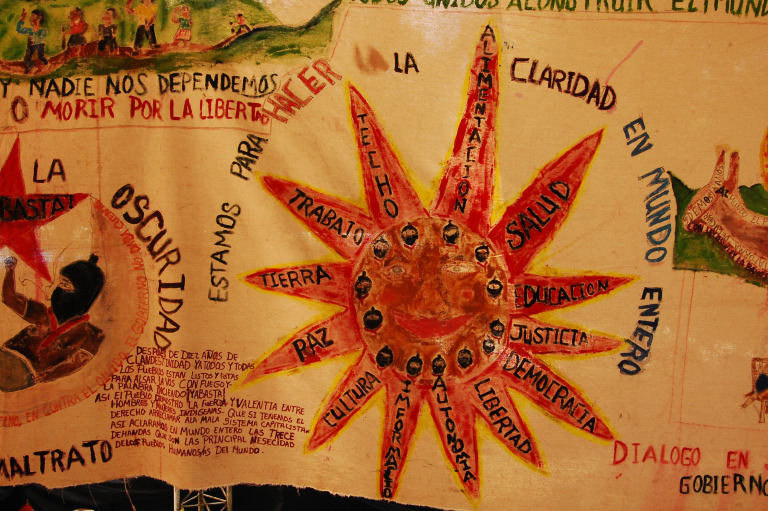 DOS UNIDOS A CONSTRUIR EL MUND
Y NADIE NOS DEPENDEMOS
O MORIR POR LA LIBERTAD
ESTAMOS PARA HACER LA LA CLARIDAD EN MUNDO ENTERO
ALIMENTACIÓN
SALUD
EDUCACION
JUSTICIA
DEMOCRACIA
LIBERTAD
AUTONOMIA
INFORMACIO
CULTURA
PAZ
TIERRA
TRABAJO
TECHO
LA
OSCURIDAD
BASTA!
DESPUES DE DIEZ AÑOS DE
CLANDESTINIDAD YA TODOS Y TODAS
LOS PUEBLO ESTAN LISTOS Y LISTAS
PARA ALSAR LA VOS CON FUEGO Y
LA PALABRA DICIENDO ¡YA BASTA!
ASI EL PUEBLO DEMOSTRO LA FUERZA Y VALENTIA ENTRE
HOMBRES Y MUJERES INDIGENAS. QUE SI TENEMOS EL
DERECHO A ALA MALA SISTEMA CAPITALISTA
ASI ACLARAMOS EN MUNDO ENTERO LAS TRECE
DEMANDAS QUE SON LAS PRINCIPAL NESECIDAD
DE LOS PUEBLOS HUMANOS/AS DEL MUNDO.
MALTRATO
DIALOGO EN
GOBIERNO